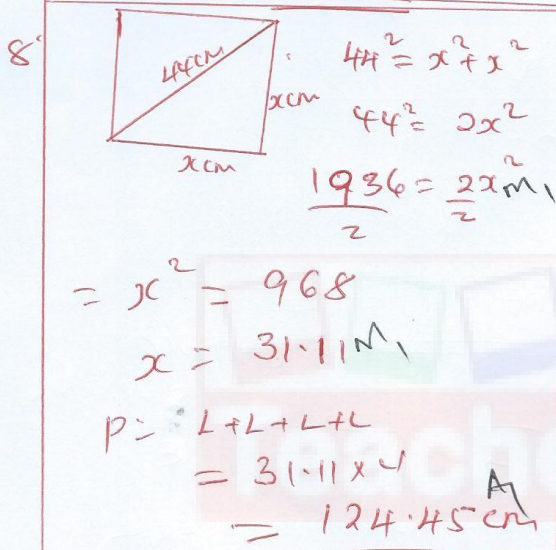 8
44cm
xcm
xcm
44² = x² + x²
44² = 2x²
1936/2 = 2x²/2 M1
= x² = 968
x = 31.11 M1
P = L+L+L+L
= 31.11 x 4
= 124.45 cm A1
Teache